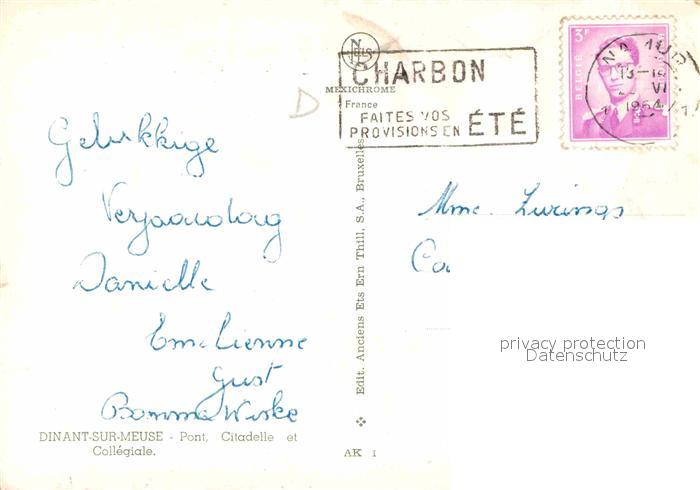 Gelukkige
Verjaardag
Danielle
Emelienne
Gust
Bomma Wiske
DINANT-SUR-MEUSE - Pont, Citadelle et
Collégiale.
NELS
MEXICHROME
France
Edit. Anciens Ets Ern Thill, S.A., Bruxelles
AK 1
CHARBON
FAITES VOS
PROVISIONS EN ÉTÉ
NAMUR
13-
VI
1964
3F
BELGIE
Mme.
Ca
privacy protection
Datenschutz